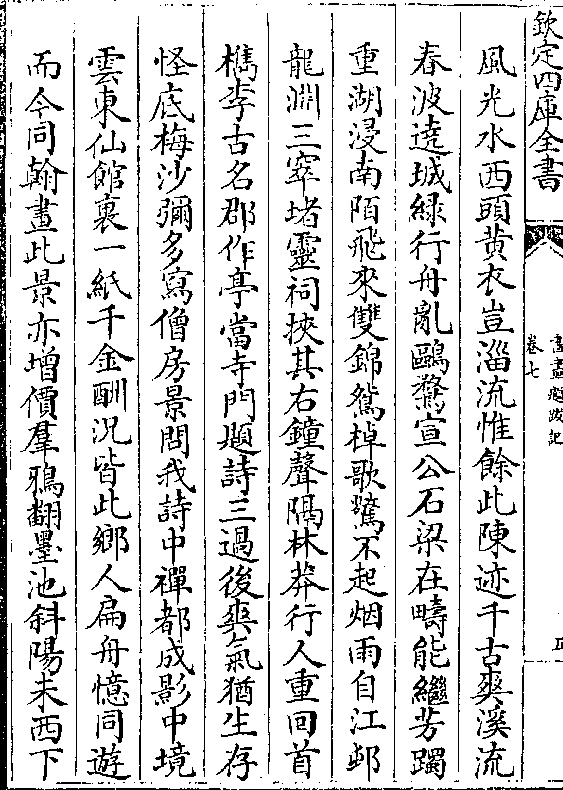 欽定四庫全書
書畫題跋記
卷七
風光水西頭黄衣豈淄流惟餘此陳迹千古爽溪流
春波遶城緑行舟亂鷗鶩宣公石梁在疇能繼芳躅
重湖浸南陌飛來雙錦鴛棹歌驚不起烟雨自江邨
龍淵三窣堵靈祠挾其右鐘聲隔林莽行人重回首
檇李古名郡作亭當寺門題詩三過後爽氣猶生存
怪底梅沙彌多寫僧房景問我詩中禪都成影中境
雲東仙館裏一紙千金酬况皆此鄉人扁舟憶同遊
而今同翰畫此景亦增價羣鴉翻墨池斜陽未西下